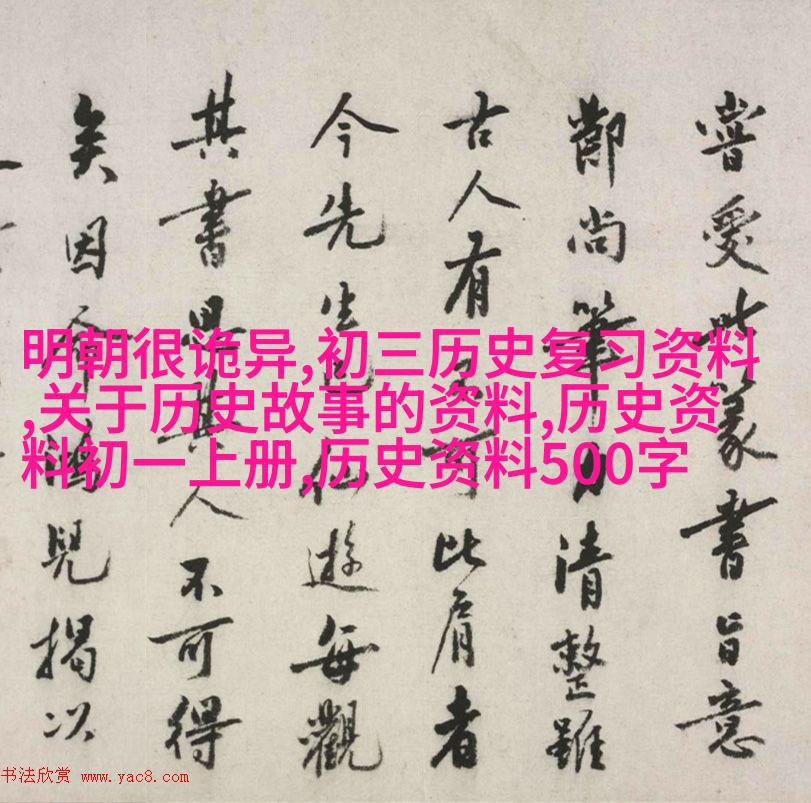 明朝很诡异,初三历史复习资料
,关于历史故事的资料,历史资
料初一上册,历史资料500字
嘗受此篆書旨意
尚筆力清整雖
古人有可比肩者
今先生已仙遊每觀
其書其人不可得
矣因鴻兒揭以
书法欣赏 www.yac8.com